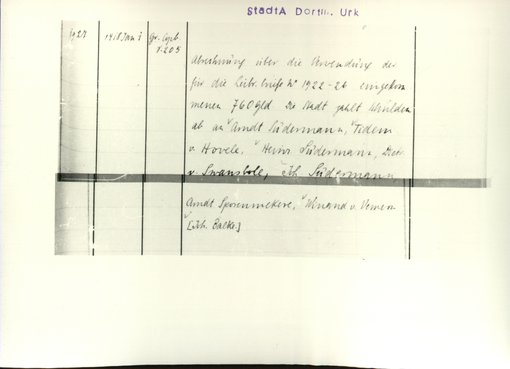 StadtA Dortm. Urk
1927 1418 Jan 7 Gr. Cpb.
F. 205
Abrechnung über die Anwendung der
für die Leibr.briefe Nr 1922-26 eingekom
menen 760 gld Die Stadt zahlt Schulden
ab an Arndt Südermann, Tidem
v. Hovele, Henr Südermann, Detm
v. Swansbole, Joh Südermann
Arndt Sporenmekere, Winand v. Unnen
[Joh. Balke.]